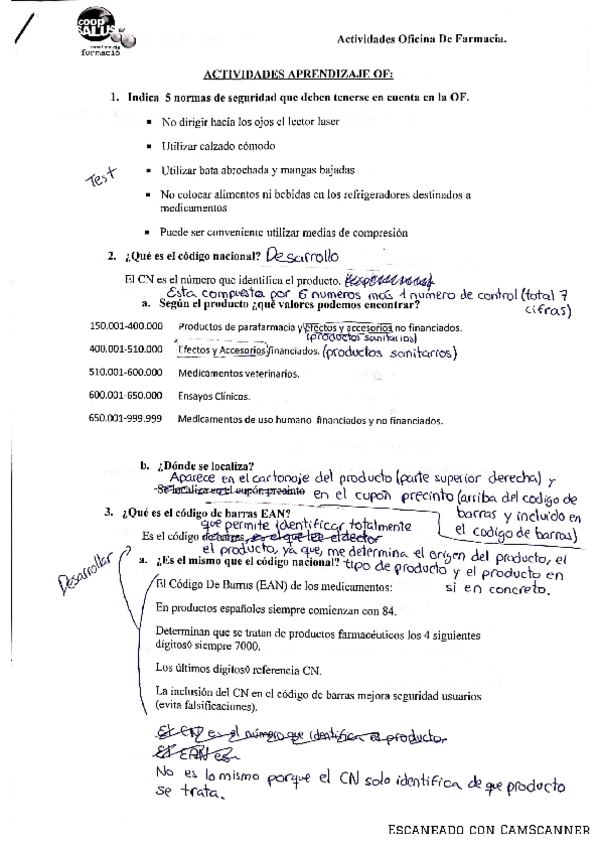 COOP
SALUS
centre de
formació
Actividades Oficina De Farmacia.
ACTIVIDADES APRENDIZAJE OF:
1. Indica 5 normas de seguridad que deben tenerse en cuenta en la OF.
▪ No dirigir hacia los ojos el lector laser
▪ Utilizar calzado cómodo
Test
▪ Utilizar bata abrochada y mangas bajadas
▪ No colocar alimentos ni bebidas en los refrigeradores destinados a
medicamentos
▪ Puede ser conveniente utilizar medias de compresión
2. ¿Qué es el código nacional? Desarrollo
El CN es el número que identifica el producto.
Esta compuesta por 6 numeros más 1 numero de control (total 7
cifras)
a. Según el producto ¿qué valores podemos encontrar?
150.001-400.000 Productos de parafarmacia y efectos y accesorios no financiados.
(productos sanitarios)
400.001-510.000 Efectos y Accesorios financiados. (productos sanitarios)
510.001-600.000 Medicamentos veterinarios.
600.001-650.000 Ensayos Clínicos.
650.001-999.999 Medicamentos de uso humano financiados y no financiados.
b. ¿Dónde se localiza?
Aparece en el cartonaje del producto (parte superior derecha) y
Se localiza en el cupón precinto en el cupon precinto (arriba del codigo de
barras y incluido en
el codigo de barras)
3. ¿Qué es el código de barras EAN?
que permite identificar totalmente
Es el código de barras, es el que lee el lector
el producto, ya que, me determina el origen del producto, el
tipo de producto y el producto en
si en concreto.
a. ¿Es el mismo que el código nacional?
Desarrollar
El Código De Barras (EAN) de los medicamentos:
En productos españoles siempre comienzan con 84.
Determinan que se tratan de productos farmacéuticos los 4 siguientes
digitos◊ siempre 7000.
Los últimos digitos◊ referencia CN.
La inclusión del CN en el código de barras mejora seguridad usuarios
(evita falsificaciones).
El CN es el número que identifica el productor
El EAN es
No es lo mismo porque el CN solo identifica de que producto
se trata.
ESCANEADO CON CAMSCANNER